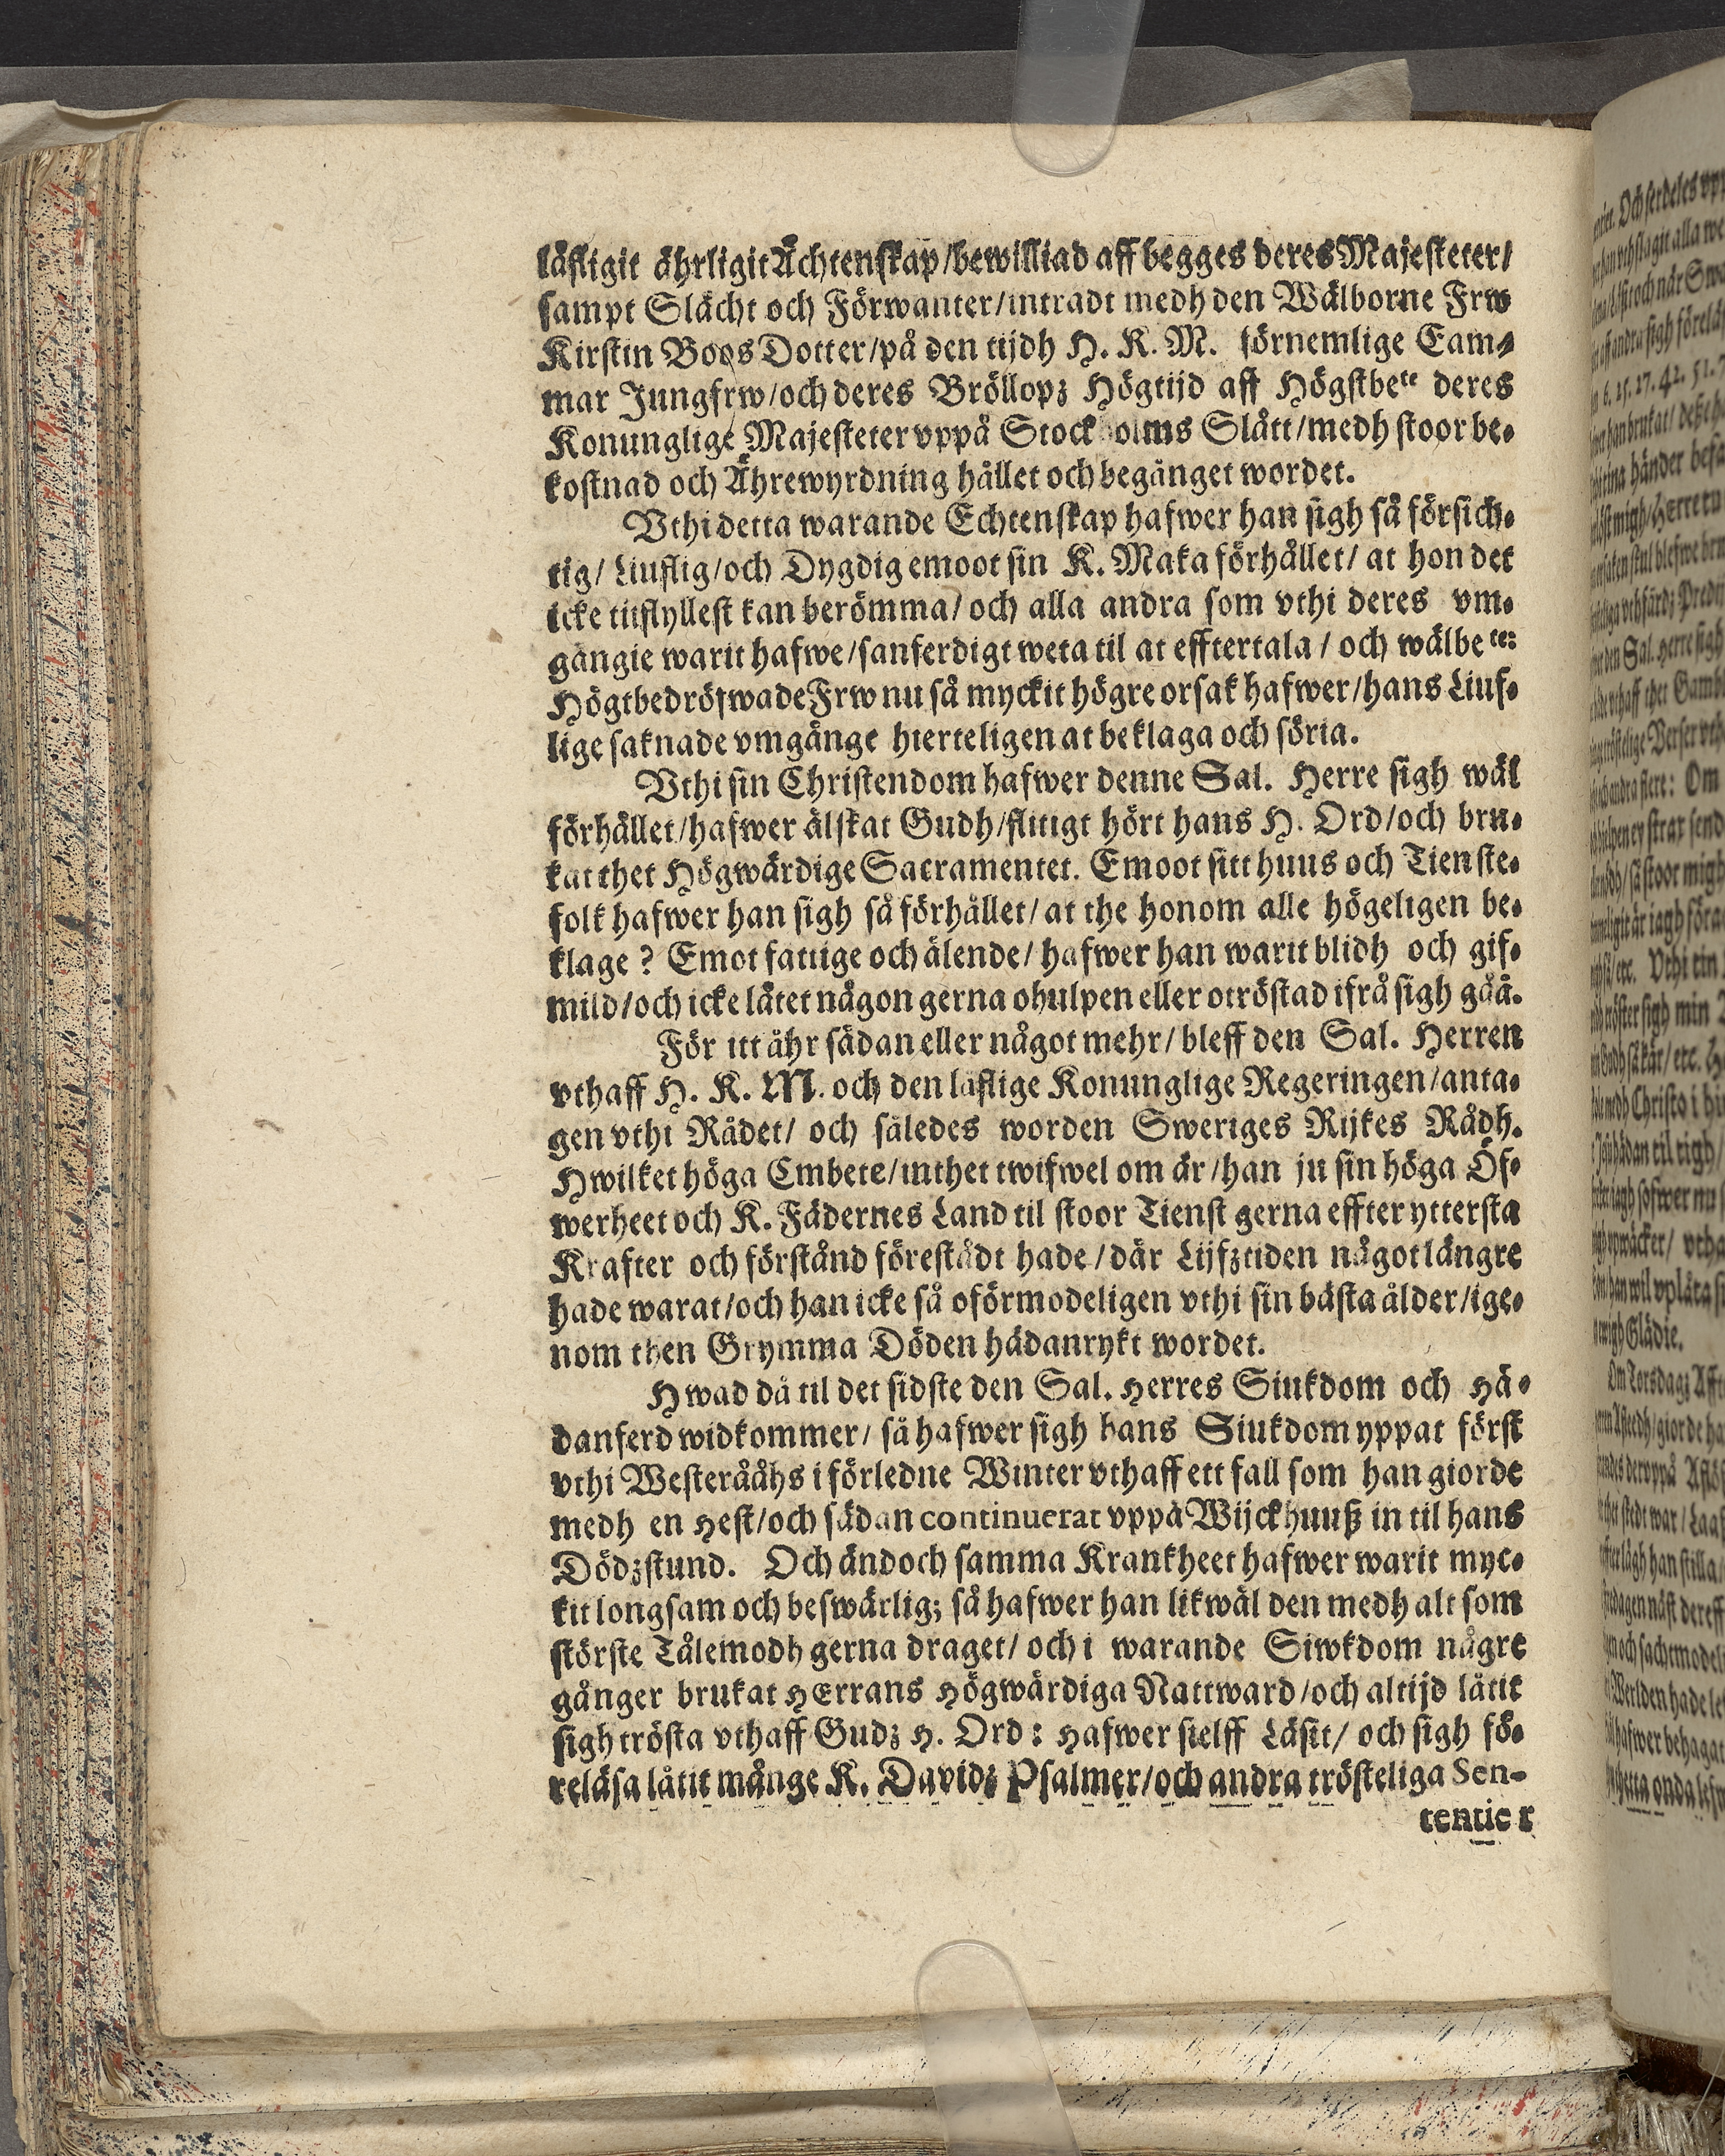 läfligit ährligit Ächtenskap/bewilliad aff begges deres Majesteter/
sampt Slächt och Förwanter/intradt medh den Wälborne Frw
Kirstin Boos Dotter/på den tijdh H. K. M. förnemlige Cam-
mar Jungfrw/och deres Bröllopz Högtijd aff Högstbete deres
Konunglige Majesteter vppå Stockholms Slått/medh stoor be-
kostnad och Ährewyrdning hållet och begånget wordet.
Vthi detta warande Echtenskap hafwer han sigh så försich-
tig/ Liuflig/och Dygdig emoot sin K. Maka förhållet/ at hon det
icke tilfyllest kan berömma/ och alla andra som vthi deres vm-
gängie warit hafwe/sanferdigt weta til at efftertala / och wälbete:
Högtbedröfwade Frw nu så myckit högre orsak hafwer/hans Liuf-
lige saknade vmgänge hierteligen at beklaga och söria.
Vthi sin Christendom hafwer denne Sal. Herre sigh wäl
förhållet/hafwer älskat Gudh/flitigt hört hans H. Ord/och bru-
kat thet Högwärdige Sacramentet. Emoot sitt huus och Tienste-
folk hafwer han sigh så förhållet/ at the honom alle högeligen be-
klage ? Emot fattige och älende/ hafwer han warit blidh och gif-
mild/och icke låtet någon gerna ohulpen eller otröstad ifrå sigh gåå.
För itt åhr sådan eller något mehr/ bleff den Sal. Herren
vthaff H. K. M. och den läflige Konunglige Regeringen/anta-
gen vthi Rådet/ och således worden Sweriges Rijkes Rådh.
Hwilket höga Embete/inthet twifwel om är/han ju sin höga Öf-
werheet och K. Fädernes Land til stoor Tienst gerna effter yttersta
Krafter och förstånd förestådt hade/där Lijfztiden något längre
hade warat/och han icke så oförmodeligen vthi sin bästa ålder/ige-
nom then Grymma Döden hädanrykt wordet.
Hwad då til det sidste den Sal. Herres Siukdom och Hä-
danferd widkommer/ så hafwer sigh hans Siukdom yppat först
vthi Westerååhs i förledne Winter vthaff ett fall som han giorde
medh en Hest/och sådan continuerat vppå Wijckhuuß in til hans
Dödzstund. Och ändoch samma Krankheet hafwer warit myc-
kit longsam och beswärlig; så hafwer han likwäl den medh alt som
störste Tålemodh gerna draget/ och i warande Siwkdom någre
gånger brukat HErrans Högwärdiga Nattward/och altijd låtit
sigh trösta vthaff Gudz H. Ord: Hafwer sielff Läsit/ och sigh fö-
reläsa låtit månge K. Davidz Psalmer/och andra trösteliga Sen-
tentier